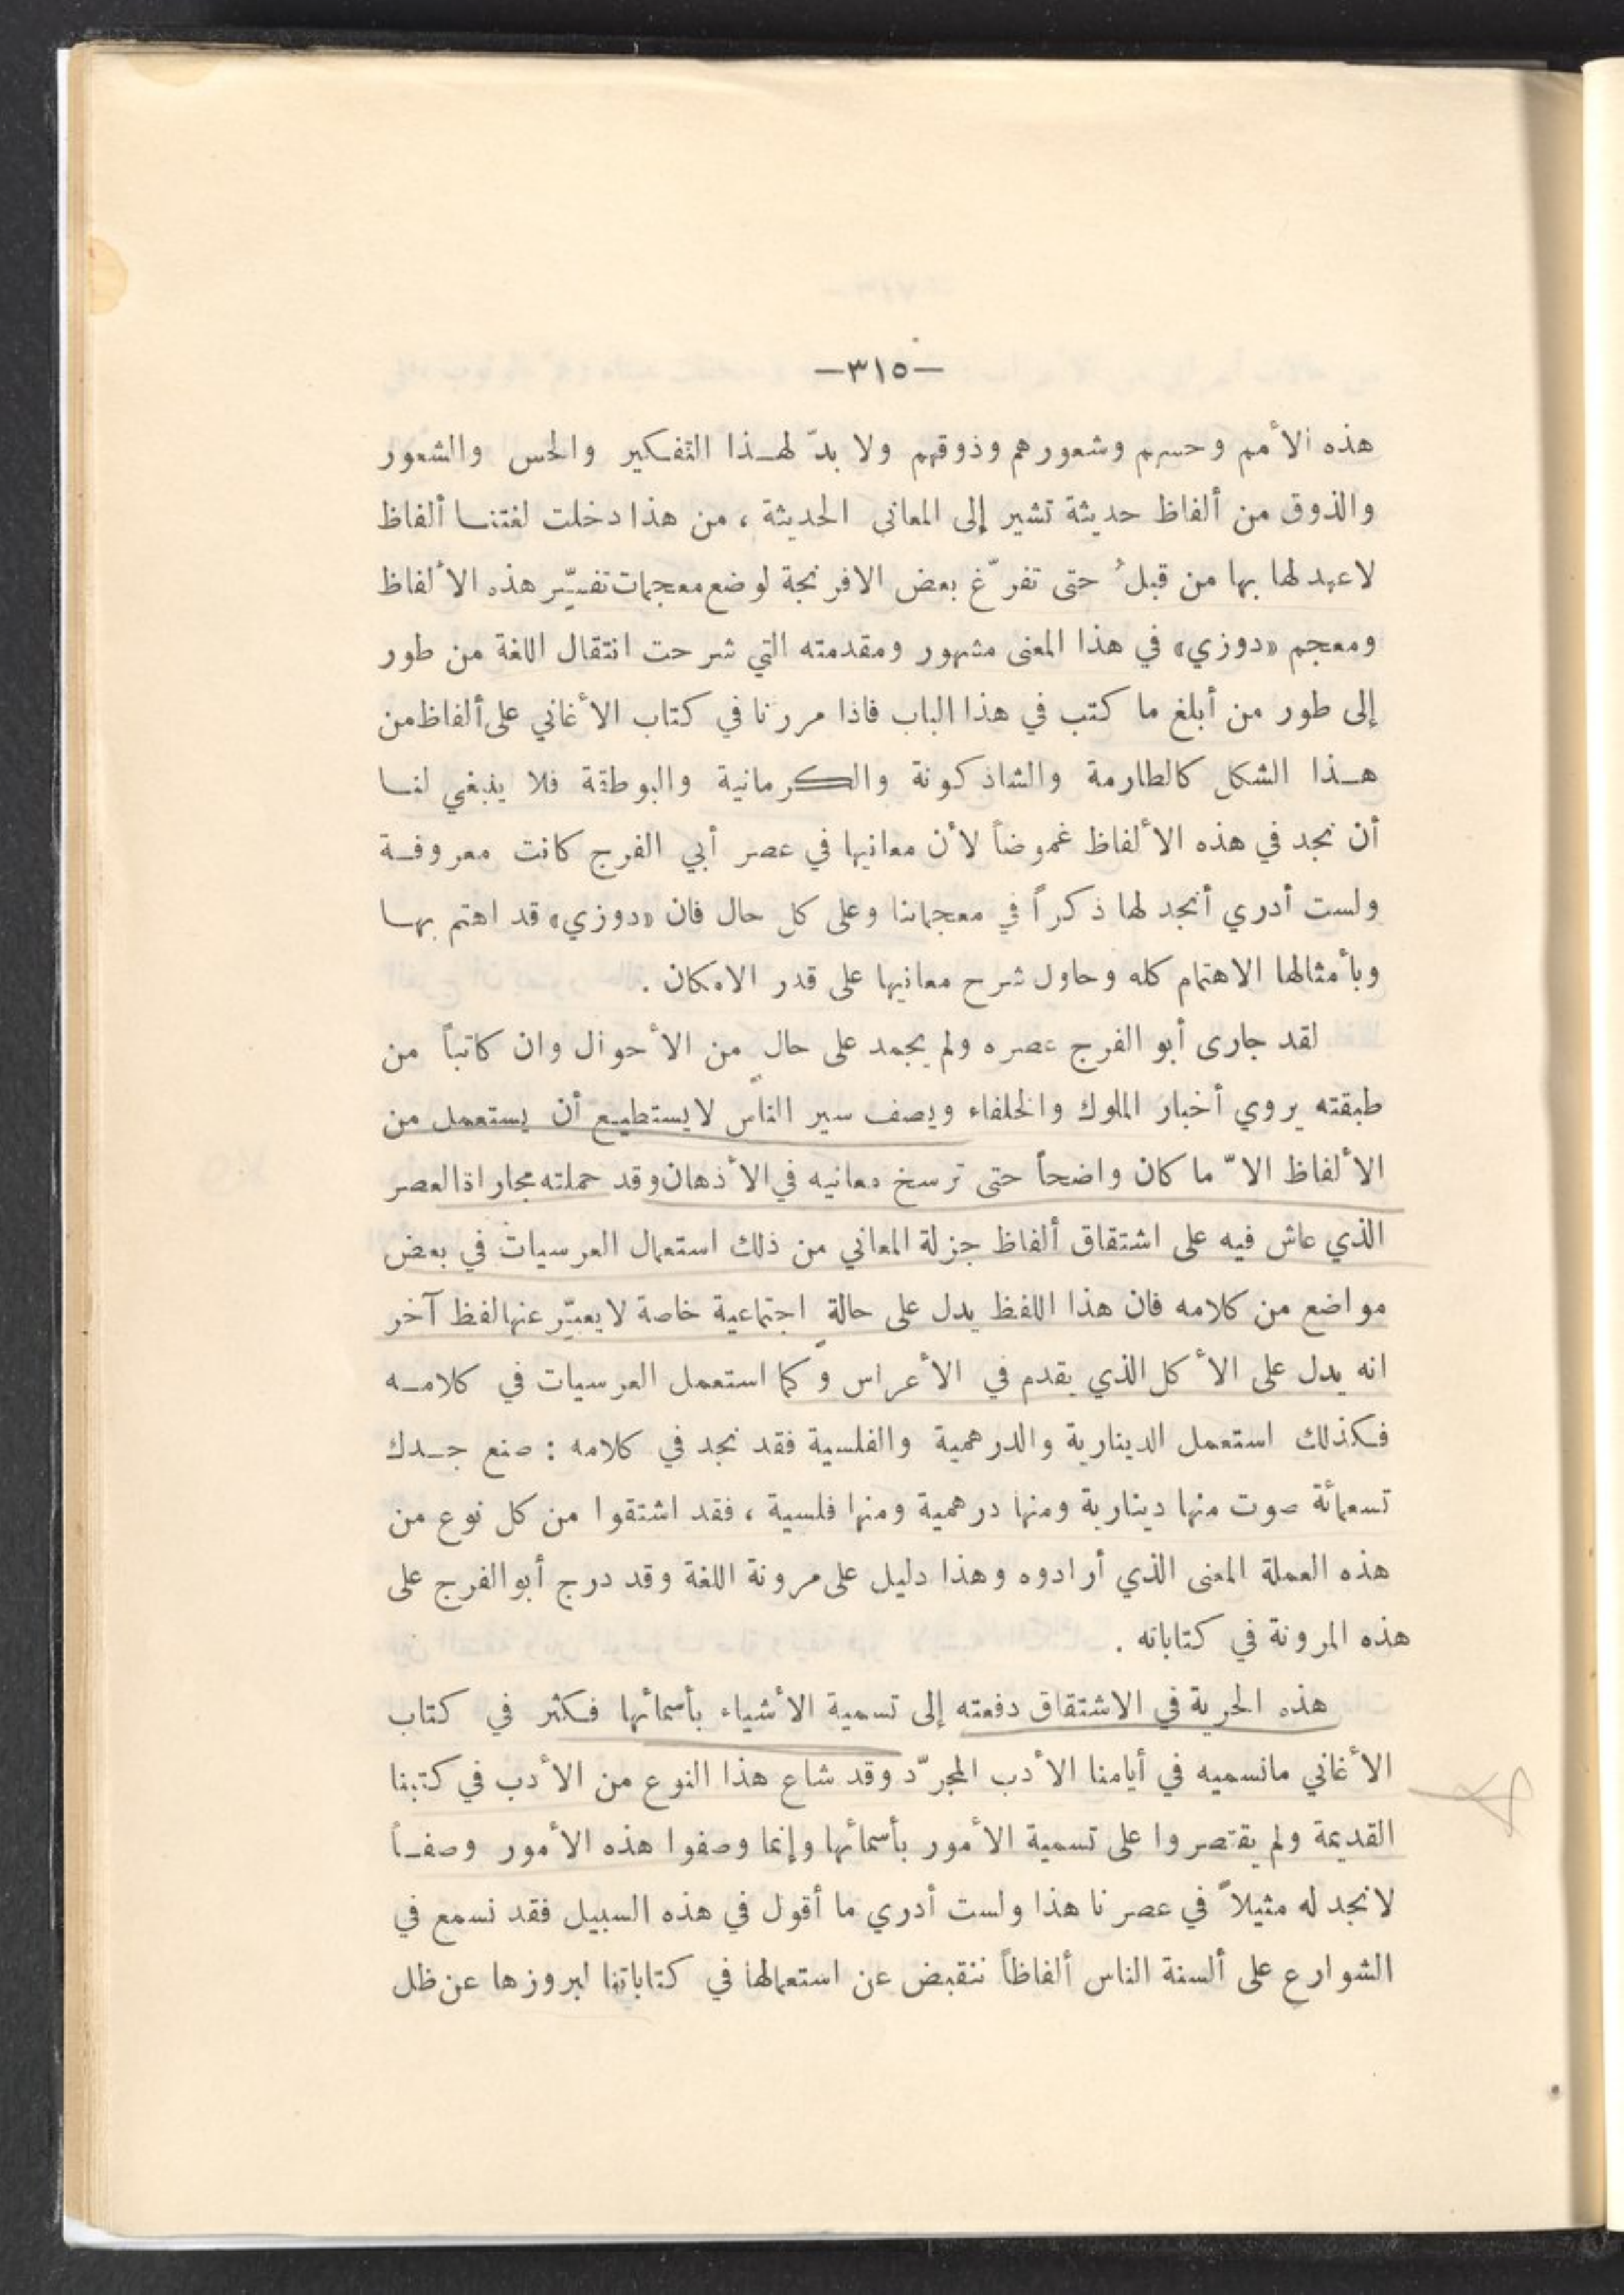 —٣١٥—
هذه الأمم وحسهم وشعورهم وذوقهم ولا بدّ لهذا التفكير والحس والشعور
والذوق من ألفاظ حديثة تشير إلى المعاني الحديثة ، من هذا دخلت لغتنا ألفاظ
لاعهد لها بها من قبلُ حتى تفرّغ بعض الافرنجة لوضع معجمات تفسّر هذه الألفاظ
ومعجم «دوزي» في هذا المعنى مشهور ومقدمته التي شرحت انتقال اللغة من طور
إلى طور من أبلغ ما كتب في هذا الباب فاذا مررنا في كتاب الأغاني على ألفاظ من
هذا الشكل كالطارمة والشاذكونة والكرمانية والبوطقة فلا ينبغي لنا
أن نجد في هذه الألفاظ غموضاً لأن معانيها في عصر أبي الفرج كانت معروفة
ولست أدري أنجد لها ذكراً في معجماتنا وعلى كل حال فان «دوزي» قد اهتم بها
وبأمثالها الاهتمام كله وحاول شرح معانيها على قدر الامكان .
لقد جارى أبو الفرج عصره ولم يجمد على حال من الأحوال وان كاتباً من
طبقته يروي أخبار الملوك والخلفاء ويصف سير الناس لايستطيع أن يستعمل من
الألفاظ الاّ ما كان واضحاً حتى ترسخ معانيه في الأذهان وقد حملته مجاراة العصر
الذي عاش فيه على اشتقاق ألفاظ جزلة المعاني من ذلك استعمال العرسيات في بعض
مواضع من كلامه فان هذا اللفظ يدل على حالة اجتماعية خاصة لا يعبّر عنها لفظ آخر
انه يدل على الأكل الذي يقدم في الأعراس وكما استعمل العرسيات في كلامه
فكذلك استعمل الدينارية والدرهمية والفلسية فقد نجد في كلامه : صنع جدك
تسعمائة صوت منها دينارية ومنها درهمية ومنها فلسية ، فقد اشتقوا من كل نوع من
هذه العملة المعنى الذي أرادوه وهذا دليل على مرونة اللغة وقد درج أبو الفرج على
هذه المرونة في كتاباته .
هذه الحرية في الاشتقاق دفعته إلى تسمية الأشياء بأسمائها فكثر في كتاب
الأغاني مانسميه في أيامنا الأدب المجرّد وقد شاع هذا النوع من الأدب في كتبنا
القديمة ولم يقتصروا على تسمية الأمور بأسمائها وإنما وصفوا هذه الأمور وصفاً
لانجد له مثيلاً في عصرنا هذا ولست أدري ما أقول في هذه السبيل فقد نسمع في
الشوارع على ألسنة الناس ألفاظاً ننقبض عن استعمالها في كتاباتنا لبروزها عن ظل